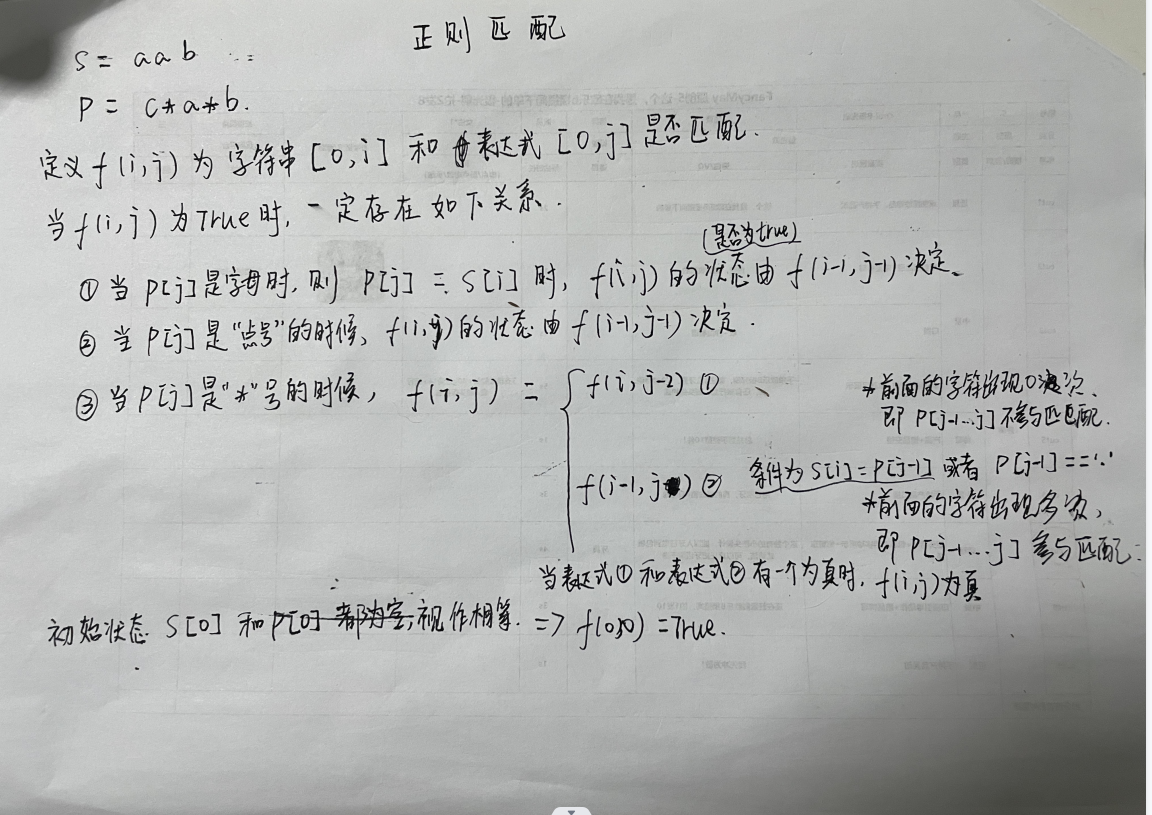 正则匹配
S = aab
P = c*a*b.
定义 f(i,j) 为字符串 [0,i] 和表达式 [0,j] 是否匹配.
当 f(i,j) 为 True 时, 一定存在如下关系.
(是否为true)
① 当 P[j] 是字母时, 则 P[j] = S[i] 时, f(i,j) 的状态由 f(i-1,j-1) 决定.
② 当 P[j] 是"点号"的时候, f(i,j) 的状态由 f(i-1,j-1) 决定.
③ 当 P[j] 是"*"号的时候, f(i,j) = { f(i,j-2) ① *前面的字符出现0次.
即 P[j-1...j] 不参与匹配.
f(i-1,j) ② 条件为 S[i] = P[j-1] 或者 P[j-1] == '.'
*前面的字符出现多次,
即 P[j-1...j] 参与匹配.
当表达式① 和表达式② 有一个为真时, f(i,j) 为真
初始状态 S[0] 和 P[0] 都为空, 视作相等. => f(0,0) = True.